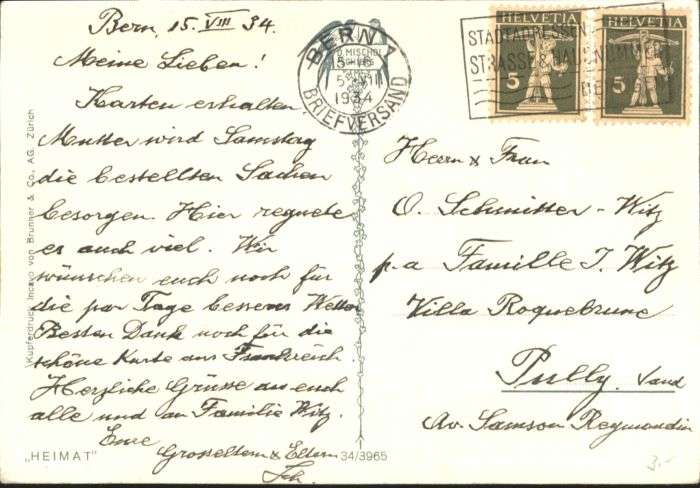 Bern, 15. VIII 34.
Meine Lieben!
Karten erhalten.
Mutter wird Samstag
die bestellten Sachen
besorgen. Hier regnete
es auch viel. Wir
wünschen euch noch für
die par Tage besseres Wetter
Besten Dank noch für die
schöne Karte aus Frankreich.
Herzliche Grüsse an euch
alle und an Familie Witz.
Eure
Grosseltern & Eltern
Sch.
BERN 1
1934
BRIEFVERSAND
STADTADRESSEN
STRASSE & HAUSNUMMER
HELVETIA
5
HELVETIA
5
Herrn & Frau
O. Schmitter-Witz
p.a Familie J. Witz
Villa Roquebrune
Pully. Vaud
Av. Samson Reymondin
Kupferdruck Incavo von Brunner & Co., AG. Zürich
„HEIMAT"
34/3965
3.-